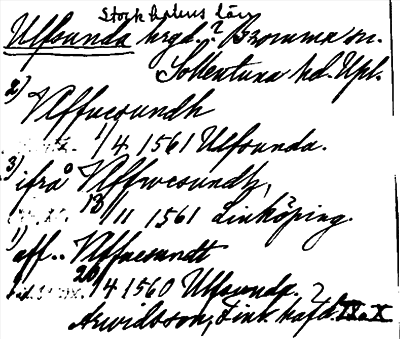 Stockholms län
Ulfsunda hrgd.? Bromma sn.
Sollentuna hd. Upl.
2) Vlffuesundh
1/4 1561 Ulfsunda.
3) ifrå Vlffwesundh,
13/11 1561 Linköping.
1) aff.. Vlffuesundt
20/4 1560 Ulfsunda. ?
Arwidsson, Finl. häfd. IX o. X